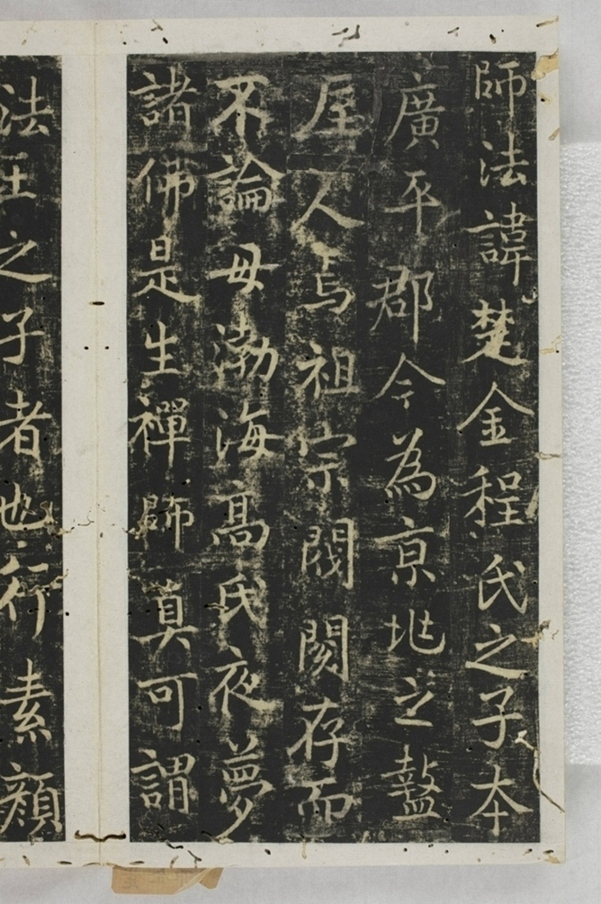 師法諱楚金程氏之子本
廣平郡今為京兆之盩
厔人焉祖宗閥閱存而
不論母渤海高氏夜夢
諸佛是生禪師真可謂
法王之子者也行素顏